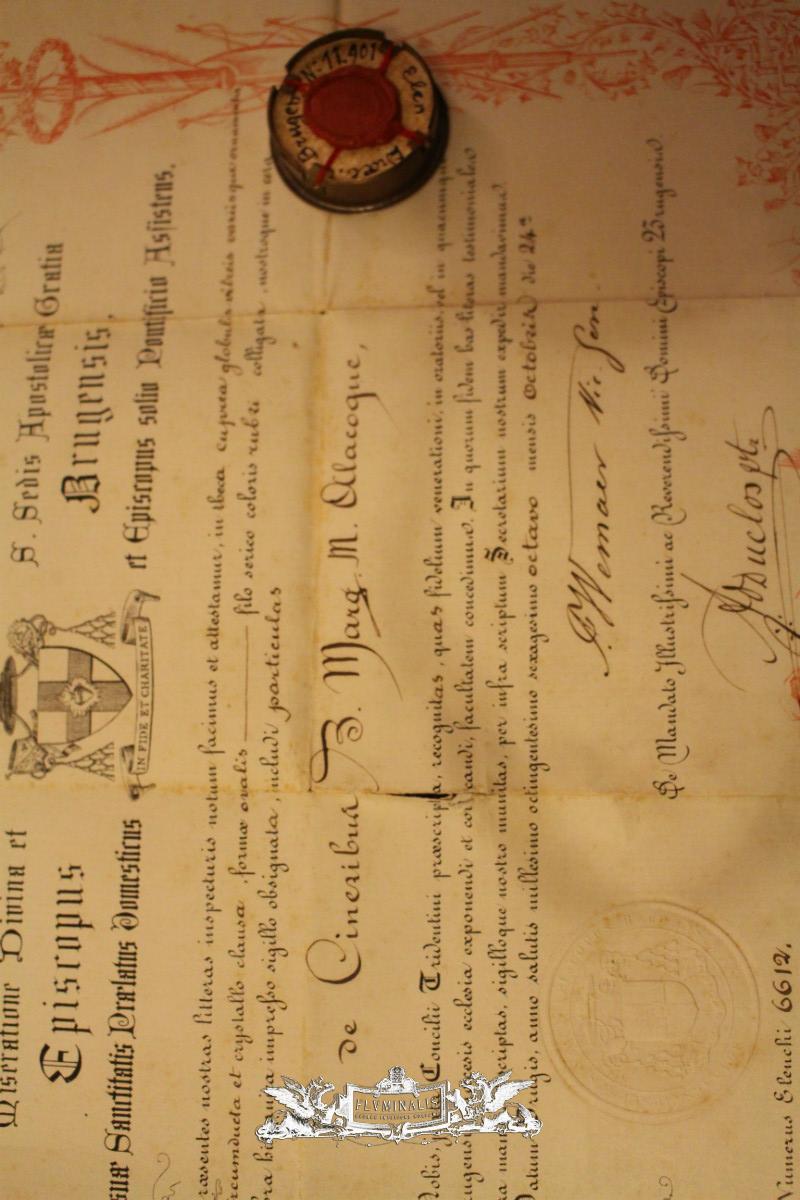 Miseratione Divina et S. Sedis Apostolicæ Gratia
Episcopus Brugensis,
suæ Sanctitatis Prælatus Domesticus et Episcopus solio Pontificio Assistens,
IN FIDE ET CHARITATE
præsentes nostras litteras inspecturis notum facimus et attestamur, in theca cuprea globulis vitreis variisque ornamentis
circumducta et crystallo clausa, formæ ovalis filo serico coloris rubri colligata, nostroque in cera
impresso sigillo obsignata, includi particulas
de Cineribus B. Marg. M. Alacoque,
Nobis, Concilii Tridentini præscripta, recognitas, quas fidelium venerationi, in oratoriis vel in quacumque
ecclesia exponendi et facultatem concedimus. In quorum fidem has literas testimoniales
sigilloque nostro munitas, per infra scriptum Secretarium nostrum expediri mandavimus.
Datum Brugis, anno salutis millesimo octingentesimo sexagesimo octavo mensis Octobris die 24ª
Wemaer Vic. Gen.
De Mandato Illustrissimi ac Reverendissimi Domini Episcopi Brugensis
Duclos
Numerus Elenchi 6612.
Nº 11.401ª
Elen
Diœc.
Brugen
FLVMINALIS